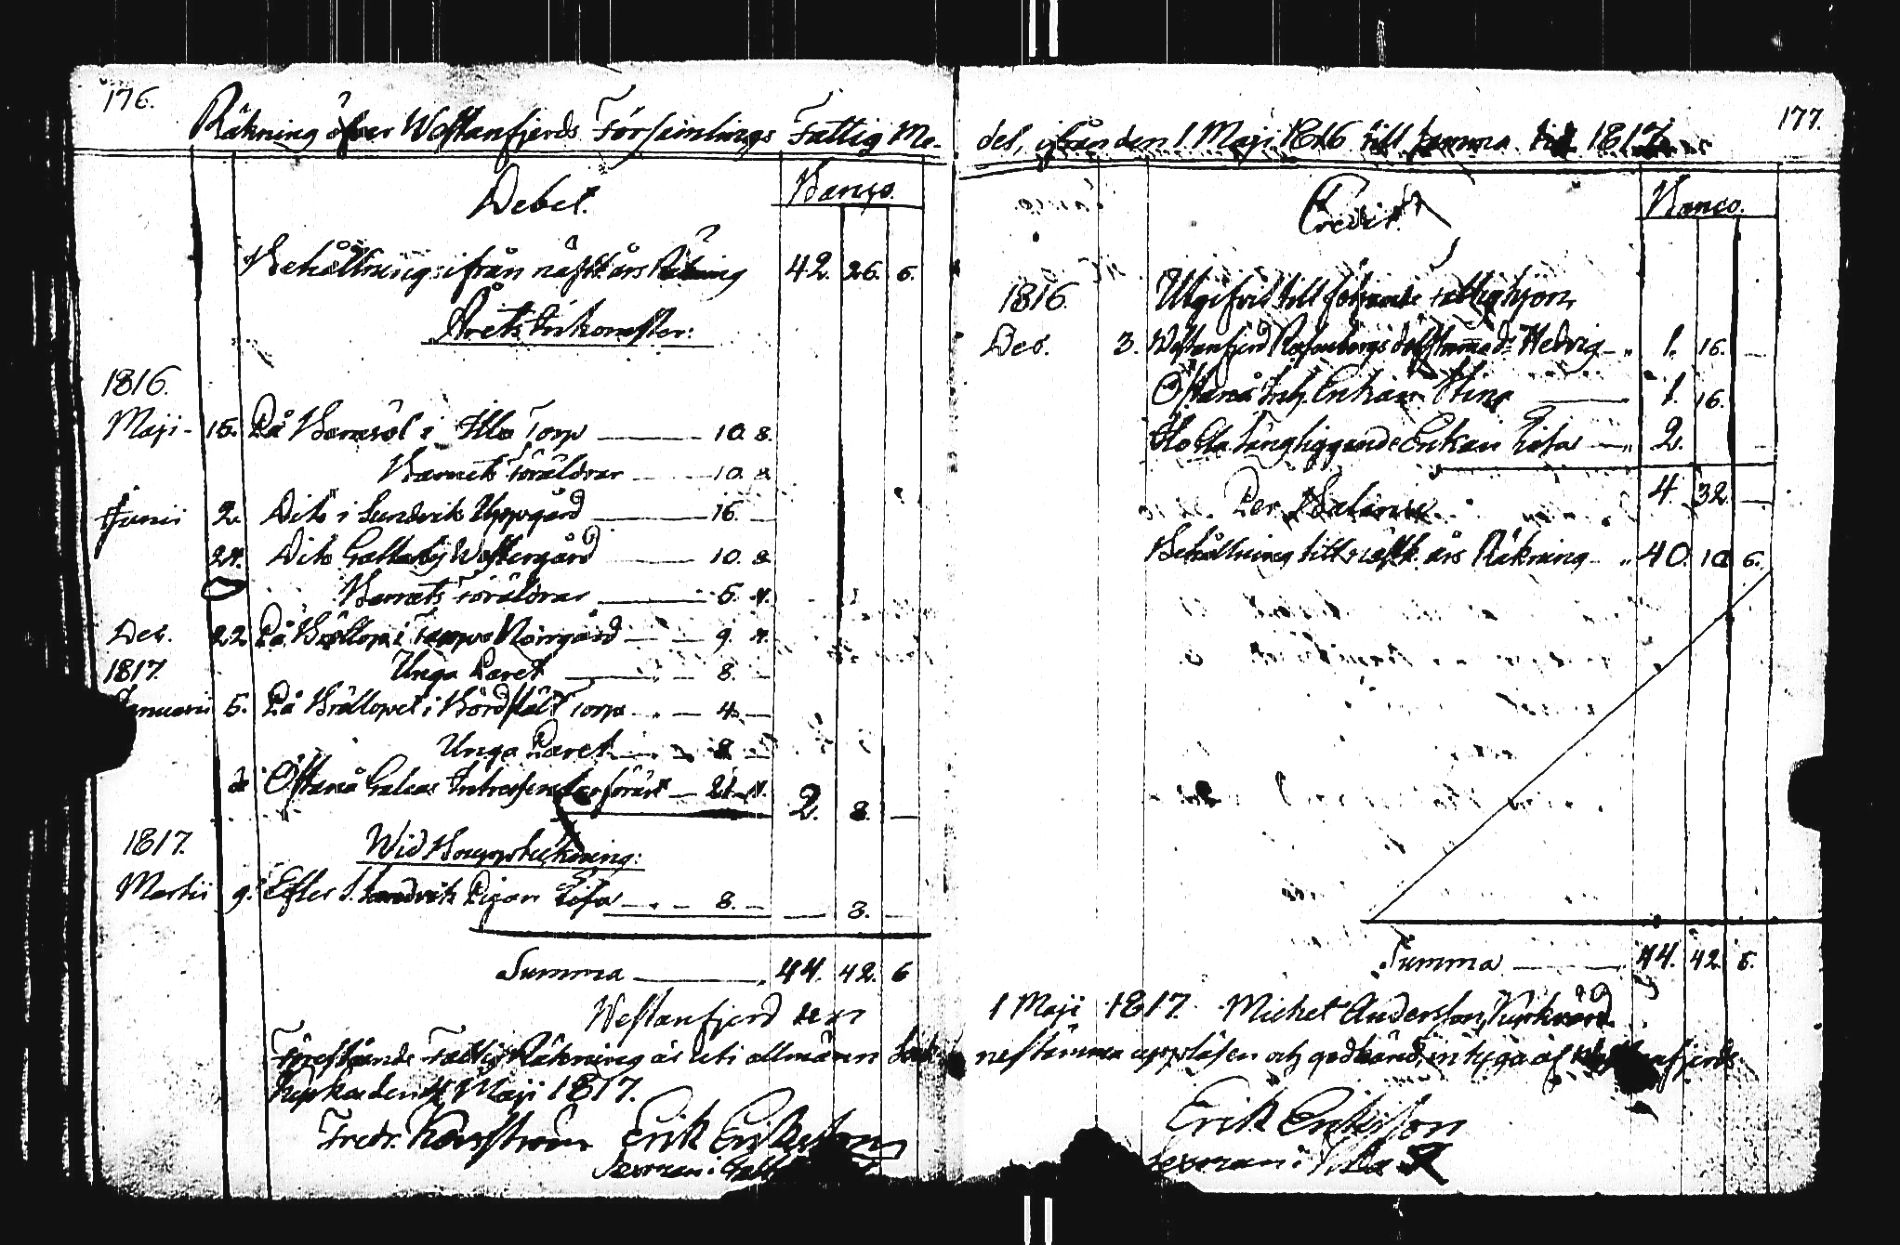 176.
Räkning öfver Westanfjerds Församlings Fattig Me-
Debet.
Banco.
Behållning ifrån näst. års Räkning 42. 26. 6.
Årets Inkomster:
1816.
Maji 15. På Barnsöl i Illo Torp 10. 8.
Barnets Föräldrar 10. 8.
Junii 2. Dito i Sundvik Uppgård 16. —
24. Dito Galtarby Westergård 10. 8
Barnets Föräldrar 5. 4.
Dec. 22 På Bröllop i Norrgård 9. 4.
1817. Unga Paret 8. —
Januarii 5. På Bröllopet i Torp 4. —
Unga Paret 8. —
Östanå Galeas 21. 4. 2. 8. —
1817. Wid
Martii 9. Efter Sandvik Pigan Lisa 8. — — 8. —
Summa 44. 42. 6
Westanfjerd den
Förestående Fattig Räkning är uti allmänn Sock-
Kyrka den 4 Maji 1817.
Fredr. Erik Eriksson
Sexman i
177.
del, ifrån den 1 Maji 1816 till samma tid 1817.
Credit.
Banco.
1816. Utgifvit till följande Fattighjon,
Dec. 3. Westanfjerd Hedvig 1. 16. —
Östanå Enkan Stina 1. 16.
Sängliggande Enkan Lisa 2. —
4. 32. —
Per Balance
Behållning till näst. års Räkning 40. 10. 6.
Summa 44. 42. 6.
1 Maji 1817. Michel Andersson, Kyrkvärd
nestämma uppläsen och godkänd, intyga af Westanfjerds
Erik Eriksson
Sexman i